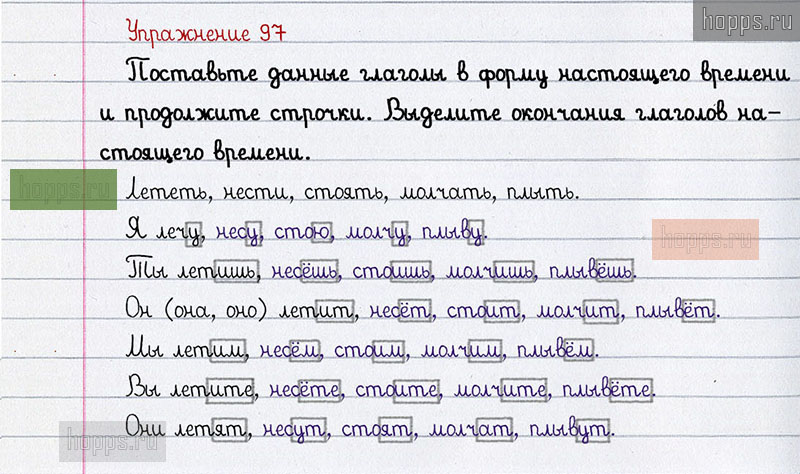 hopps.ru
Упражнение 97
Поставьте данные глаголы в форму настоящего времени
и продолжите строчки. Выделите окончания глаголов на-
стоящего времени.
hopps.ru
Лететь, нести, стоять, молчать, плыть.
Я лечу, несу, стою, молчу, плыву.
hopps.ru
Ты летишь, несёшь, стоишь, молчишь, плывёшь.
Он (она, оно) летит, несёт, стоит, молчит, плывёт.
Мы летим, несём, стоим, молчим, плывём.
Вы летите, несёте, стоите, молчите, плывёте.
Они летят, несут, стоят, молчат, плывут.
hopps.ru